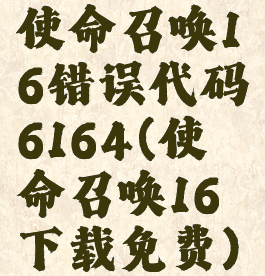 使命召唤1
6错误代码
6164(使
命召唤16
下载免费)